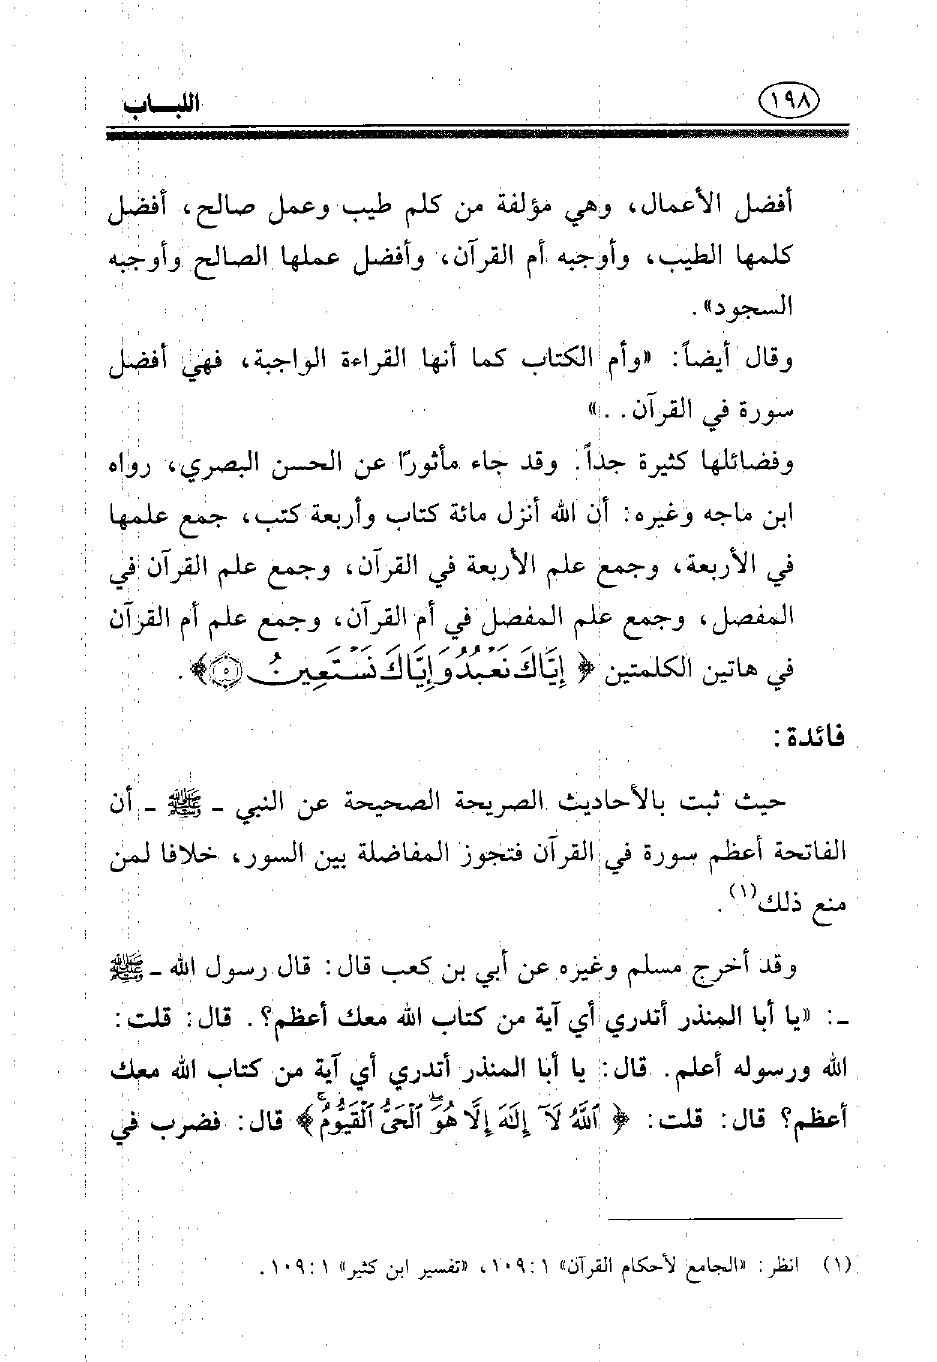 ١٩٨
اللبـــاب
أفضل الأعمال، وهي مؤلفة من كلم طيب وعمل صالح، أفضل
كلمها الطيب، وأوجبه أم القرآن، وأفضل عملها الصالح وأوجبه
السجود».
وقال أيضاً: «وأم الكتاب كما أنها القراءة الواجبة، فهي أفضل
سورة في القرآن. . .»
وفضائلها كثيرة جداً. وقد جاء مأثورًا عن الحسن البصري، رواه
ابن ماجه وغيره: أن الله أنزل مائة كتاب وأربعة كتب، جمع علمها
في الأربعة، وجمع علم الأربعة في القرآن، وجمع علم القرآن في
المفصل، وجمع علم المفصل في أم القرآن، وجمع علم أم القرآن
في هاتين الكلمتين ﴿ إِيَّاكَ نَعْبُدُ وَإِيَّاكَ نَسْتَعِينُ ۝٥ ﴾.
فائدة:
حيث ثبت بالأحاديث الصريحة الصحيحة عن النبي - ﷺ - أن
الفاتحة أعظم سورة في القرآن فتجوز المفاضلة بين السور، خلافا لمن
منع ذلك(١).
وقد أخرج مسلم وغيره عن أبي بن كعب قال: قال رسول الله - ﷺ
-: «يا أبا المنذر أتدري أي آية من كتاب الله معك أعظم؟. قال: قلت:
الله ورسوله أعلم. قال: يا أبا المنذر أتدري أي آية من كتاب الله معك
أعظم؟ قال: قلت: ﴿ ٱللَّهُ لَآ إِلَٰهَ إِلَّا هُوَ ۖ ٱلْحَىُّ ٱلْقَيُّومُ ۚ ﴾ قال: فضرب في
(١) انظر: «الجامع لأحكام القرآن» ١٠٩:١، «تفسير ابن كثير» ١٠٩:١.